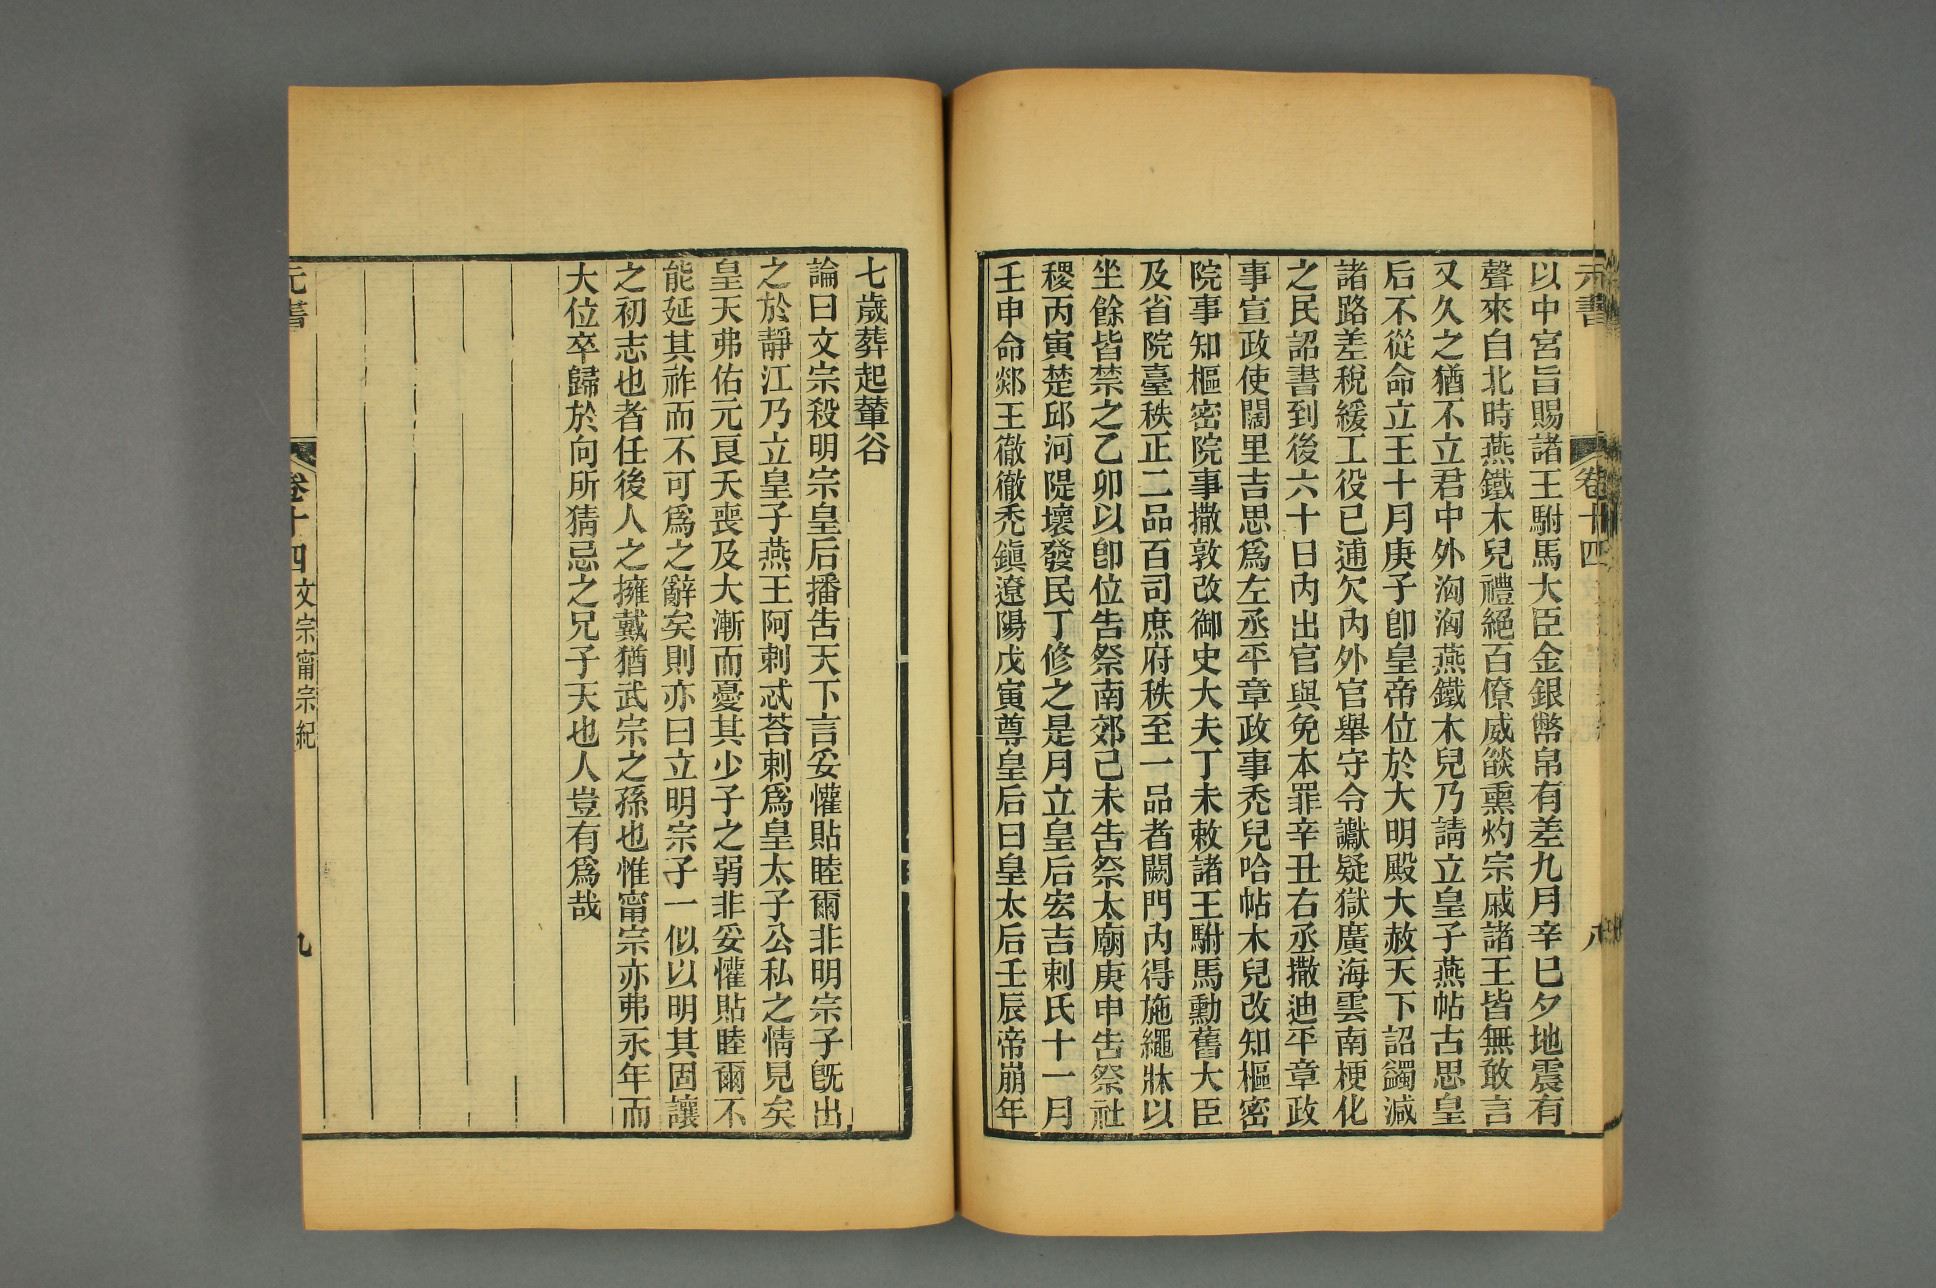 元書
卷十四
八
以中宮旨賜諸王駙馬大臣金銀幣帛有差九月辛巳夕地震有
聲來自北時燕鐵木兒禮絕百僚威燄熏灼宗戚諸王皆無敢言
又久之猶不立君中外洶洶燕鐵木兒乃請立皇子燕帖古思皇
后不從命立王十月庚子卽皇帝位於大明殿大赦天下詔蠲減
諸路差稅緩工役已逋欠內外官舉守令讞疑獄廣海雲南梗化
之民詔書到後六十日內出官與免本罪辛丑右丞撒迪平章政
事宣政使闊里吉思爲左丞平章政事禿兒哈帖木兒改知樞密
院事知樞密院事撒敦改御史大夫丁未敕諸王駙馬勳舊大臣
及省院臺秩正二品百司庶府秩至一品者闕門內得施繩牀以
坐餘皆禁之乙卯以卽位告祭南郊己未告祭太廟庚申告祭社
稷丙寅楚邱河隄壞發民丁修之是月立皇后宏吉剌氏十一月
壬申命郯王徹徹禿鎭遼陽戊寅尊皇后曰皇太后壬辰帝崩年
七歲葬起輦谷
論曰文宗殺明宗皇后播告天下言妥懽貼睦爾非明宗子旣出
之於靜江乃立皇子燕王阿剌忒荅剌爲皇太子公私之情見矣
皇天弗佑元良夭喪及大漸而憂其少子之弱非妥懽貼睦爾不
能延其祚而不可爲之辭矣則亦曰立明宗子一似以明其固讓
之初志也者任後人之擁戴猶武宗之孫也惟甯宗亦弗永年而
大位卒歸於向所猜忌之兄子天也人豈有爲哉
元書
卷十四
文宗甯宗紀
九